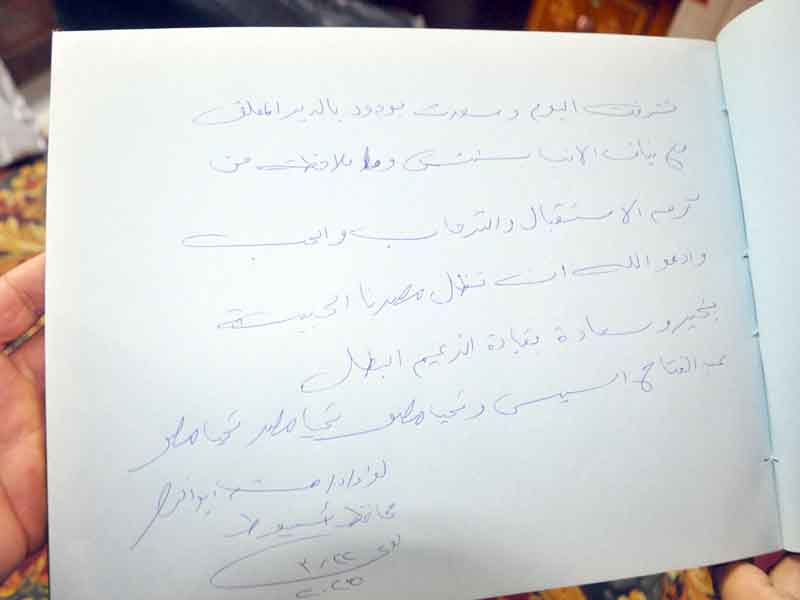 تشرفت اليوم وسعدت بوجود بالدير المعلق
مع نيافة الانبا وما لاحظت من
كرم الاستقبال والترحاب والحب
وادعو الله ان تظل مصرنا الحبيبة
بخير وسعادة بقيادة الزعيم البطل
عبد الفتاح السيسى وتحيا مصر تحيا مصر تحيا مصر
لواء أ/ ابو النصر
محافظ أسيوط